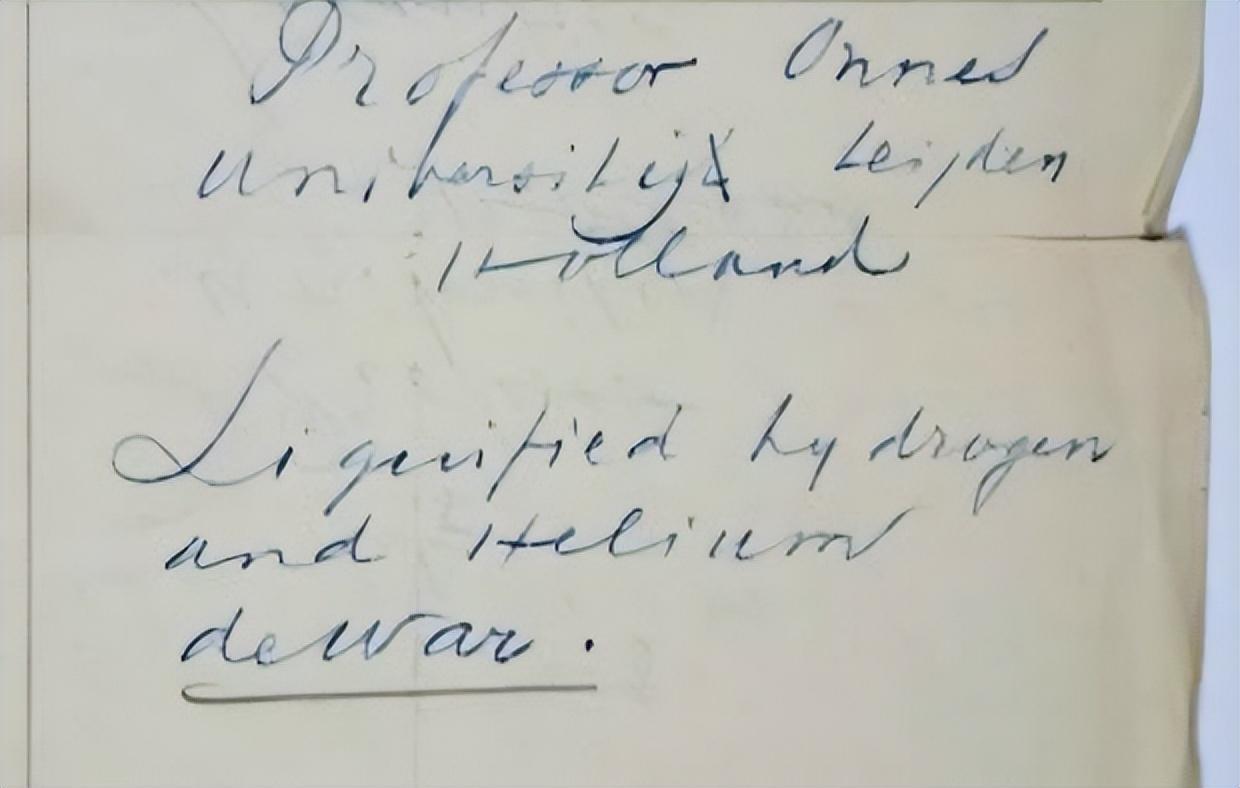 Professor Onnes
Universitijt Leijden
Holland
Liquified hydrogen
and Helium
deWar.